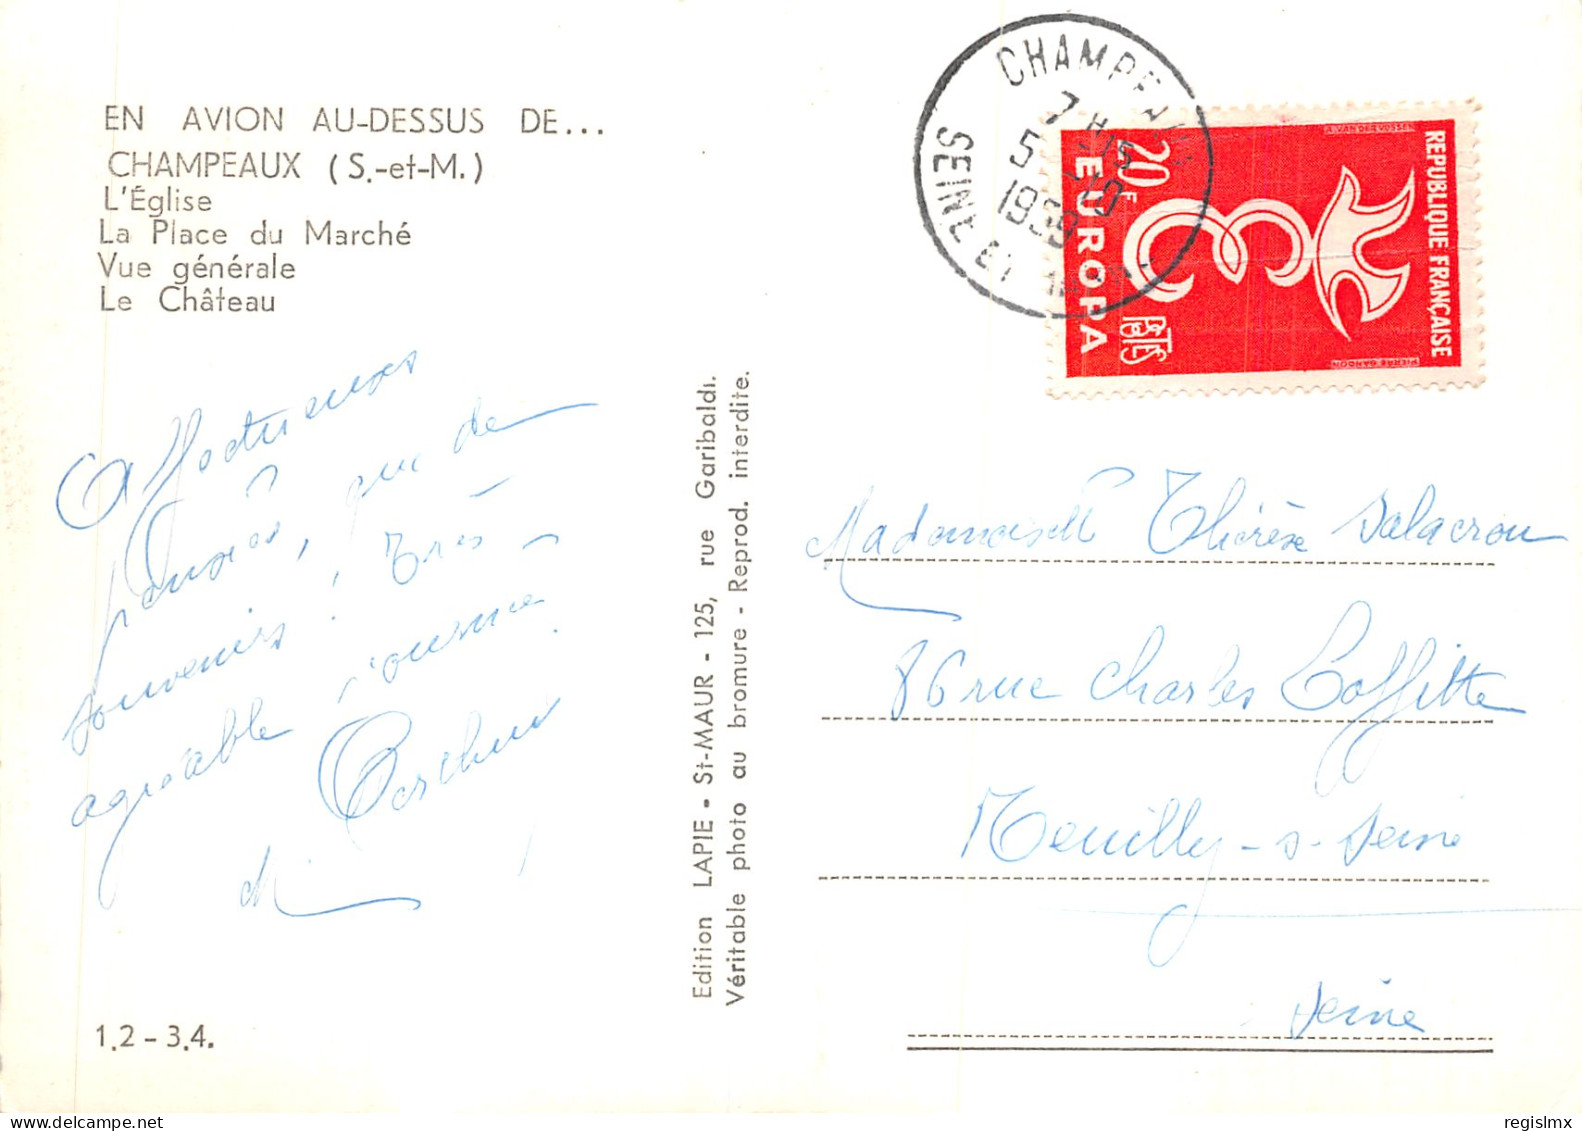 EN AVION AU-DESSUS DE...
CHAMPEAUX (S.-et-M.)
L'Église
La Place du Marché
Vue générale
Le Château
Affectueuses
pensées, que de
souvenirs ! Très
agréable journée.
M.
1.2 - 3.4.
Edition LAPIE - St-MAUR - 125, rue Garibaldi.
Véritable photo au bromure - Reprod. interdite.
CHAMPEAUX
7 H15
5 -10
1959
SEINE ET MARNE
REPUBLIQUE FRANÇAISE
20F
EUROPA
POSTES
A. VAN DER VOSSEN
PIERRE GANDON
Mademoiselle Thérèse Salacrou
86 rue Charles Laffitte
Neuilly-s-Seine
Seine
regislmx
delcampe.net